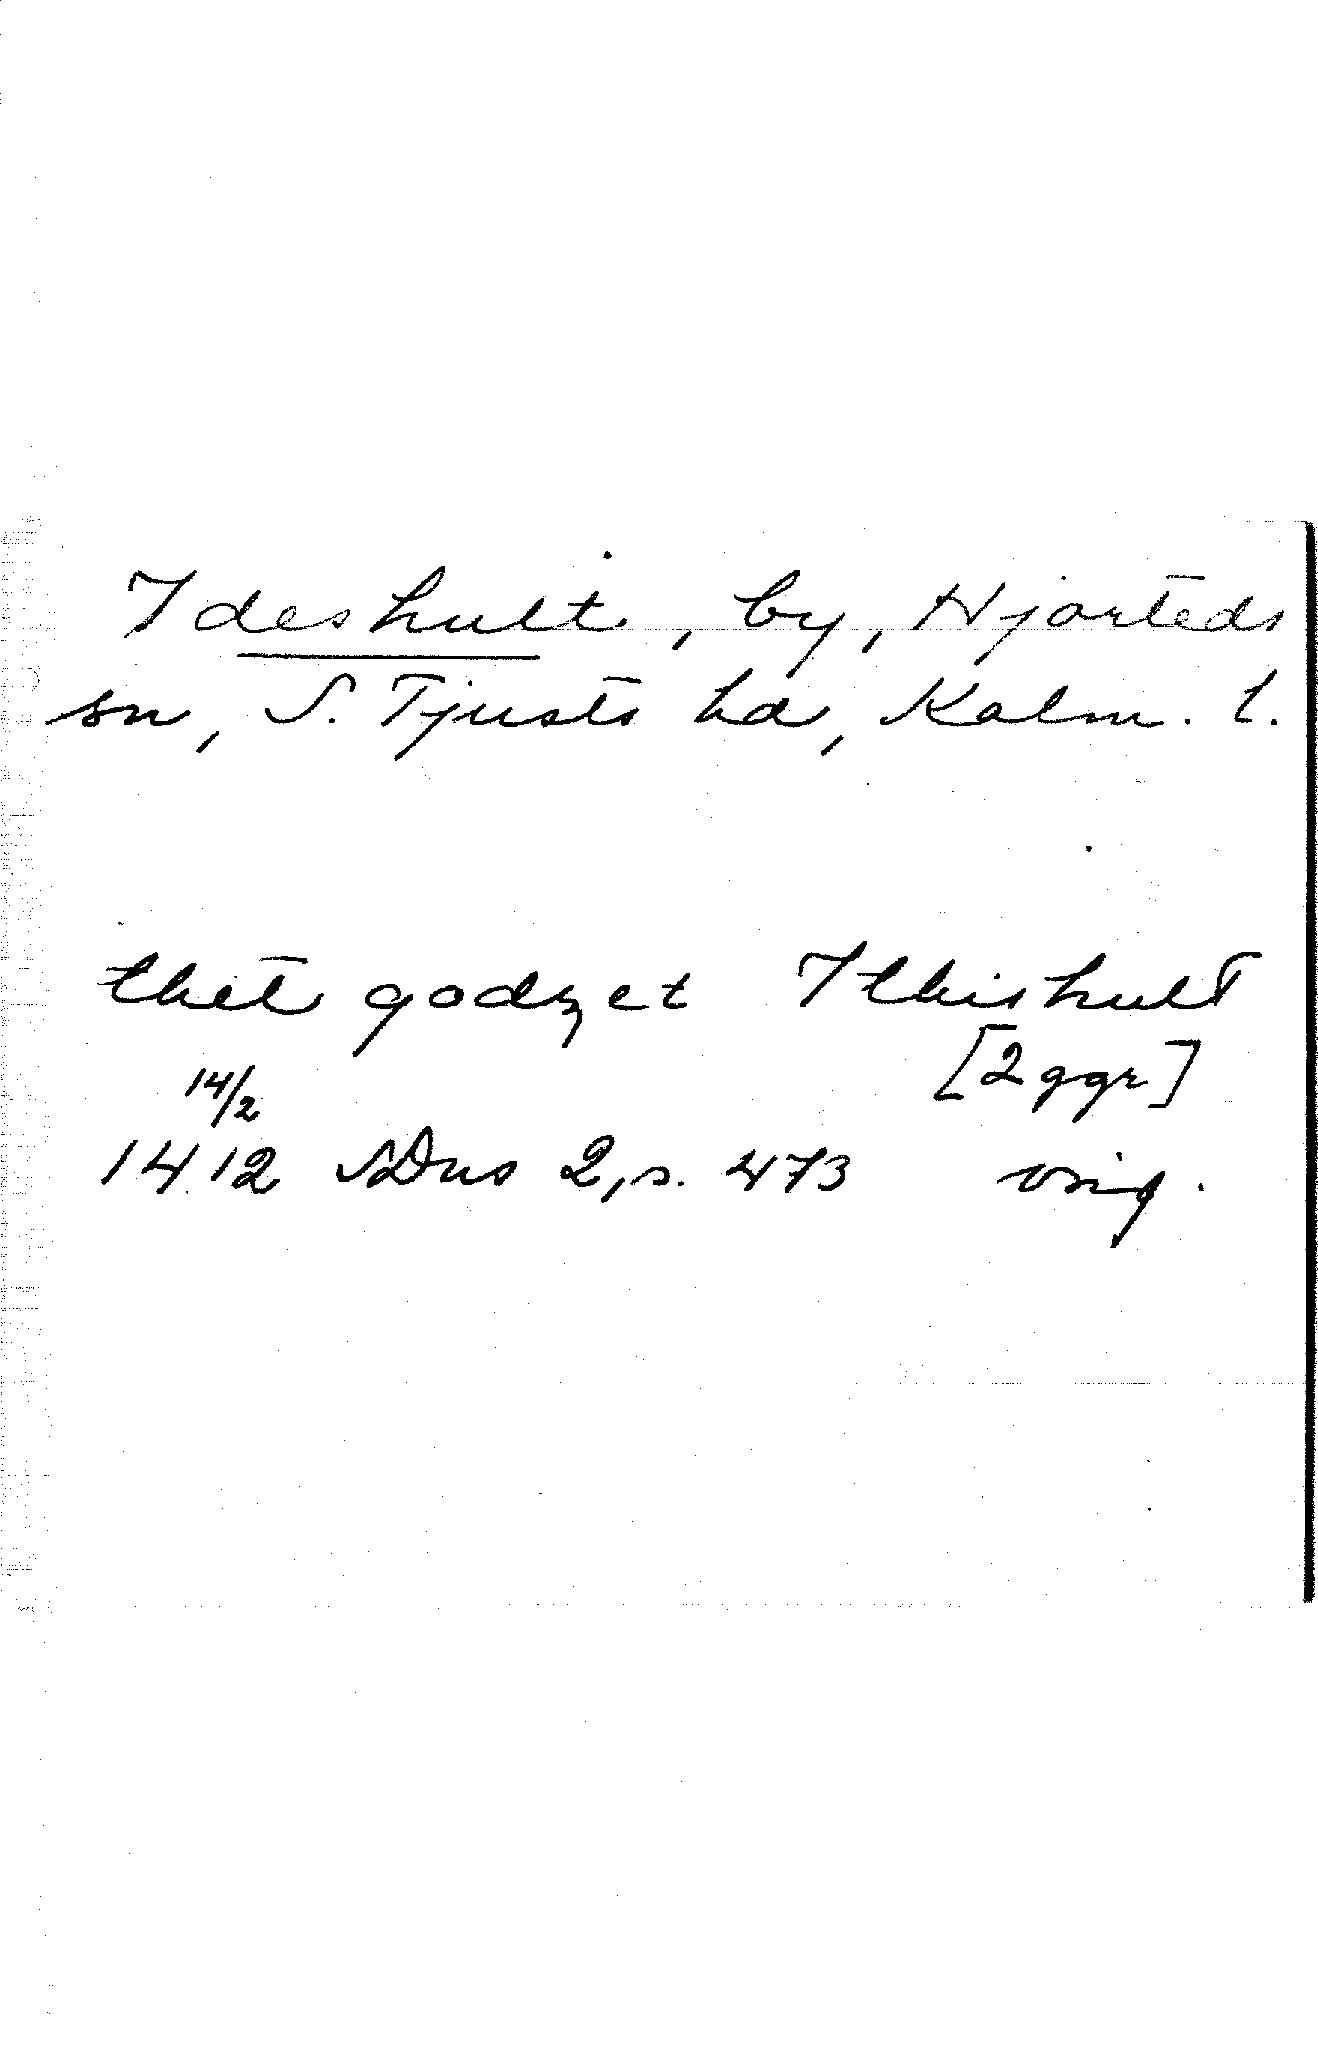 Ideshult, by, Hjorteds
sn, S. Tjusts hd, Kalm. l.
thet godzet Ithishult
[2 ggr]
14/2
1412 SDns 2, s. 473 orig.